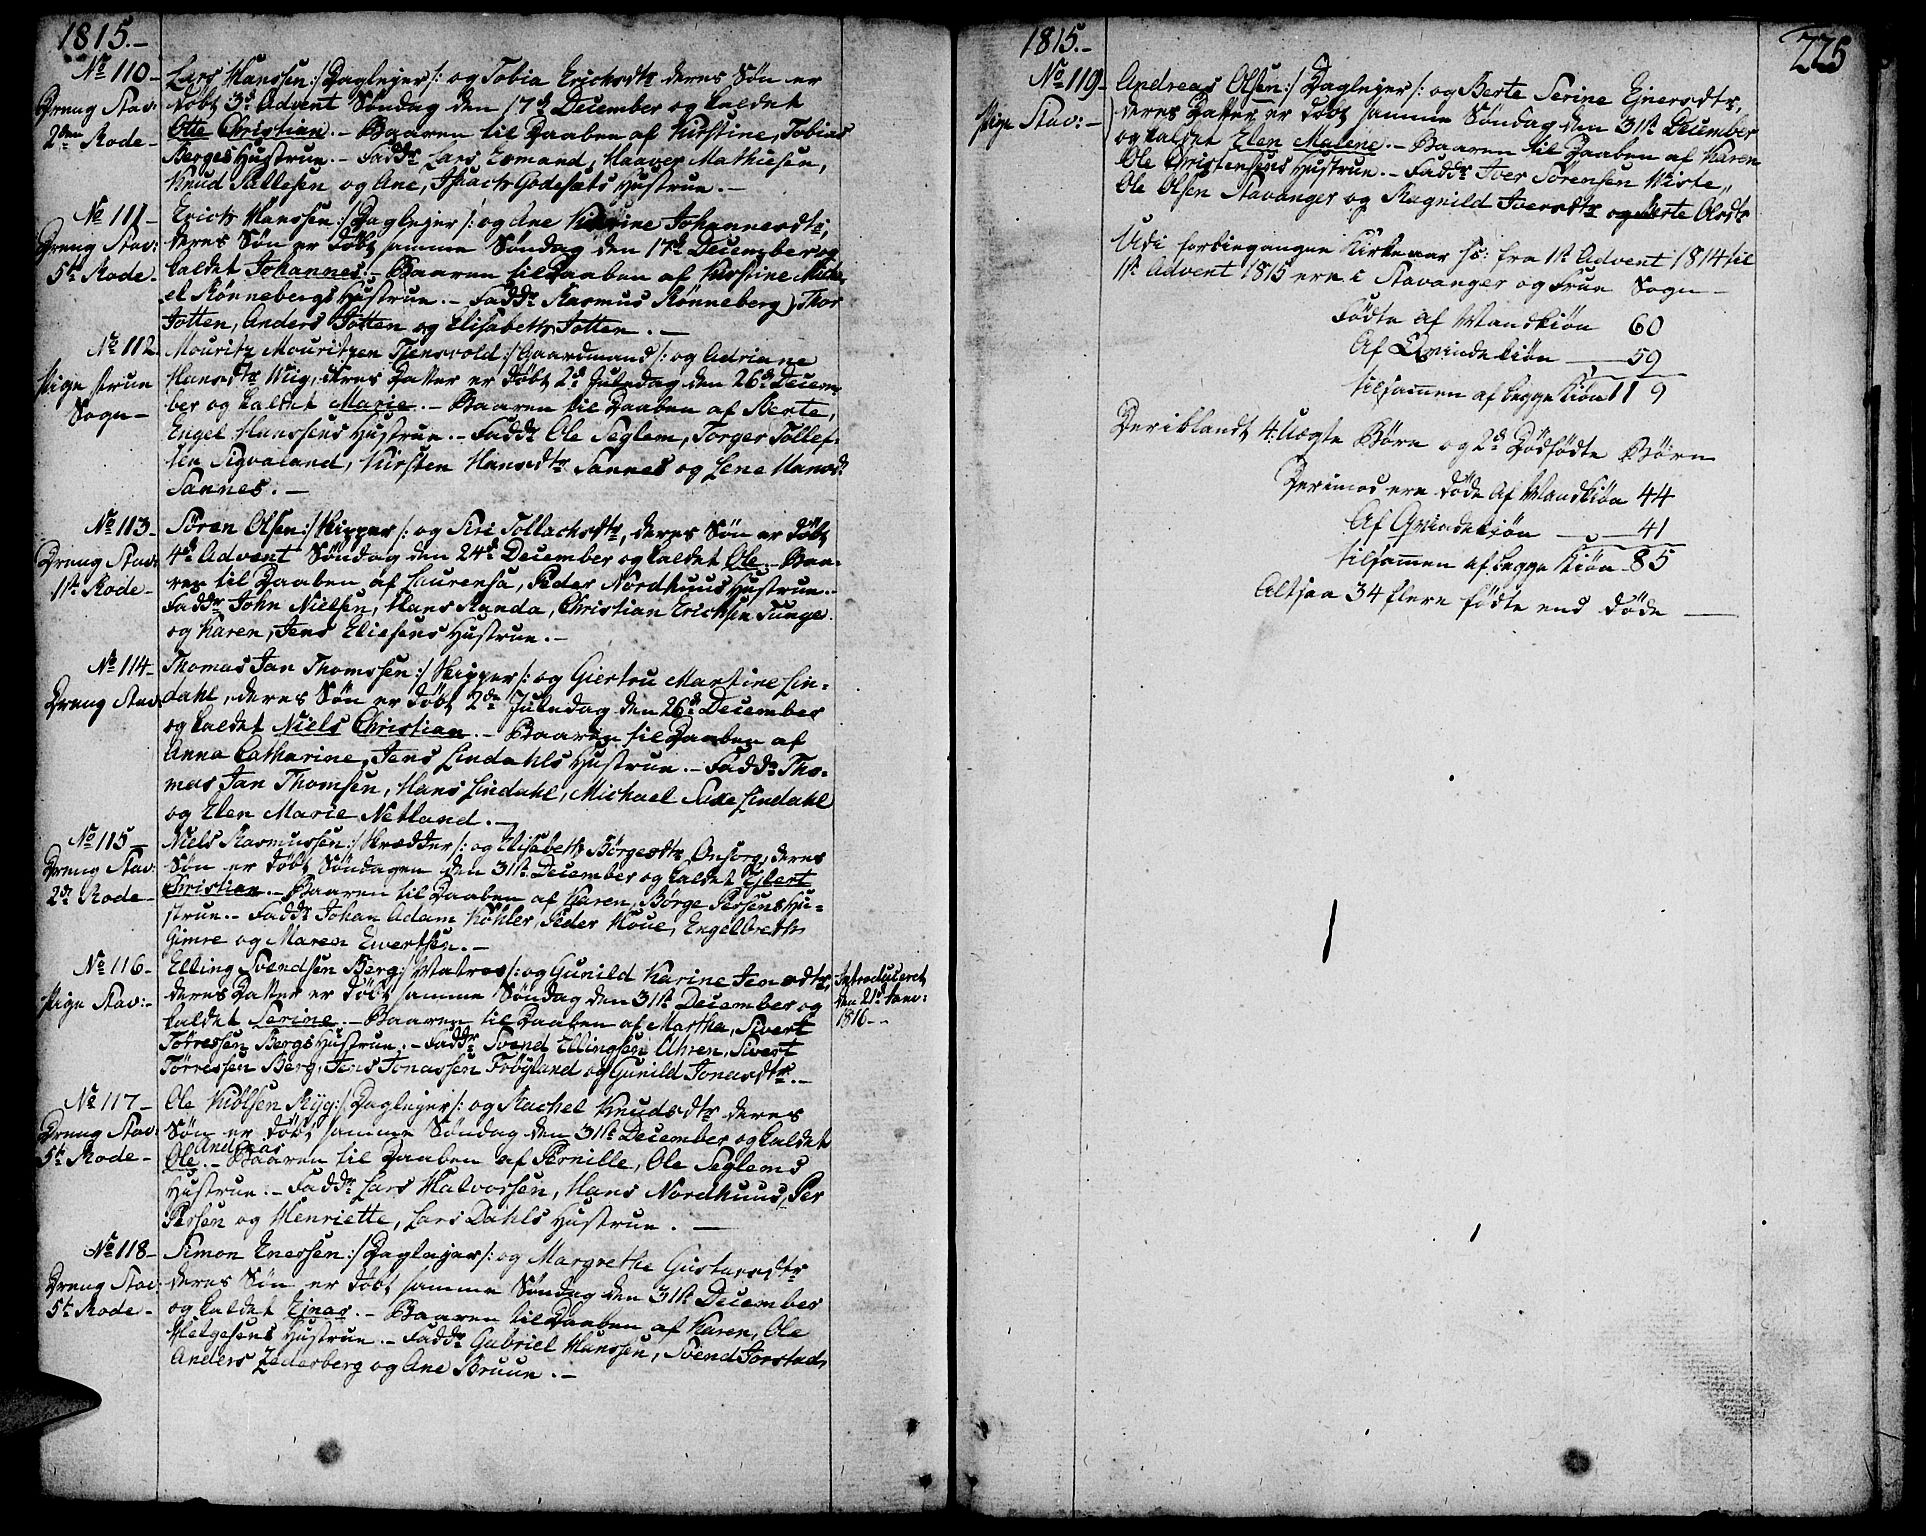 1815.-
No 110-
Dreng Stav:
2den Rode-
Lars Hanssen :/Dagleyer/: og Tobia Erichsdtr deres Søn er
døbt 3de Advent Søndag den 17de December og kaldet
Otte Christian.- Baaren til Daaben af Kirstine, Tobias
Berges Hustrue.- Faddr Lars Esmand, Haaver Mathiesen,
Knud Sallesen og Ane, Isaach Godesæts Hustrue.-
No 111-
Dreng Stav:
5te Rode-
Erich Hanssen :/Dagleyer/: og Ane Karine Johannesdtr,
deres Søn er døbt samme Søndag den 17de December og
kaldet Johannes.- Baaren til Daaben af Kirstine Mich-
el Rønnebergs Hustrue.- Faddr Rasmus Rønneberg, Thor
Jotten, Anders Jotten og Elisabeth Jotten.-
No 112.
Pige Frue
Sogn-
Mouritz Mouritzen Tjensvold :/Gaardmand/: og Adriane
Hansdtr Wiig, deres Datter er døbt 2de Juledag den 26de Decem-
ber og kaldet Marie.- Baaren til Daaben af Berte,
Engel Hanssens Hustrue.- Faddr Ole Seglem, Torger Tollef-
sen Sigvaland, Kirsten Hansdtr Sannes og Lene Hansdr
Sannes.-
No 113-
Dreng Stav:
1ste Rode-
Søren Olsen :/Skipper/: og Siri Tollachsdtr, deres Søn er døbt
4de Advent Søndag den 24de December og kaldet Ole.- Baa-
ren til Daaben af Laurensa, Peder Nordhuus Hustrue.-
Faddr John Nielsen, Hans Randa, Christian Erichsen Tunge
og Karen, Jens Eliesens Hustrue.-
No 114-
Dreng Stav:
Thomas Jan Thomssen :/Skipper/: og Giertru Martine Lin-
dahl, deres Søn er døbt 2den Juledag den 26de December
og kaldet Niels Christian.- Baaren til Daaben af
Anna Catharine, Jens Lindahls Hustrue.- Faddr Tho-
mas Jan Thomsen, Hans Lindahl, Michael Saxe Lindahl
og Elen Marie Netland.-
No 115-
Dreng Stav:
2de Rode-
Niels Rasmussen :/Skrædder/: og Elisabeth Børgesdtr Onsorg, deres
Søn er døbt Søndagen den 31te December og kaldet Ejlert
Christian.- Baaren til Daaben af Karen, Børge Persens Hu-
strue.- Faddr Johan Adam Köhler, Peder Houe, Engelbreth
Gimre og Maren Ewertsen.-
No 116-
Pige Stav:-
Elling Svendsen Berg :/Matros/: og Gunild Karine Jensdtr,
deres Datter er døbt samme Søndag den 31te December og
kaldet Serine.- Baaren til Daaben af Martha, Sivert
Torressen Bergs Hustrue.- Faddr Svend Ellingsen Ahren, Sivert
Tørressen Berg, Jens Jonassen Frøyland og Gunild Jonasdtr.-
Introduceret
den 21de Janv:
1816--
No 117-
Dreng Stav:
5te Rode-
Ole Kiølsen Ryg :/Dagleyer/: og Rachel Knudsdtr deres
Søn er døbt samme Søndag den 31te December og kaldet
Andreas
Ole.- Baaren til Daaben af Pernille, Ole Seglems
Hustrue.- Faddr Lars Halvorsen, Hans Nordhuus, Per
Persen og Henriette, Lars Dahls Hustrue.-
No 118-
Dreng Stav:
5te Rode-
Simon Enersen :/Dagleyer/: og Margrethe Gustavsdtr
deres Søn er døbt samme Søndag den 31te December
og kaldet Ejnar.- Baaren til Daaben af Karen, Ole
Helgesens Hustrue.- Faddr Gabriel Hanssen, Svend Jorstad,
Anders Zederberg og Ane Bruun.-
1815.-
225
No 119-
Pige Stav:-
Andreas Olsen :/Dagleyer/: og Berte Serine Ejnersdtr,
deres Datter er døbt samme Søndag den 31te December
og kaldet Elen Malene.- Baaren til Daaben af Karen
Ole Christensens Hustrue.- Faddr Iver Sørensen Wiste,
Ole Olsen Stavanger og Ragnild Iversdtr og Berte Olsdtr
Udi forbiegangne Kirkeaar /s: fra 1ste Advent 1814 til
1ste Advent 1815 ere i Stavanger og Frue Sogn-
Fødte af Mandkiøn 60
Af Qvindekiøn - 59
tilsammen af begge Kiøn 119
Deriblandt 4: Uægte Børn og 2de Dødfødte Børn
Derimod ere døde Af Mandkiøn 44
Af Qvindekiøn - 41
tilsammen af begge Kiøn 85
Altsaa 34 flere fødte end døde -